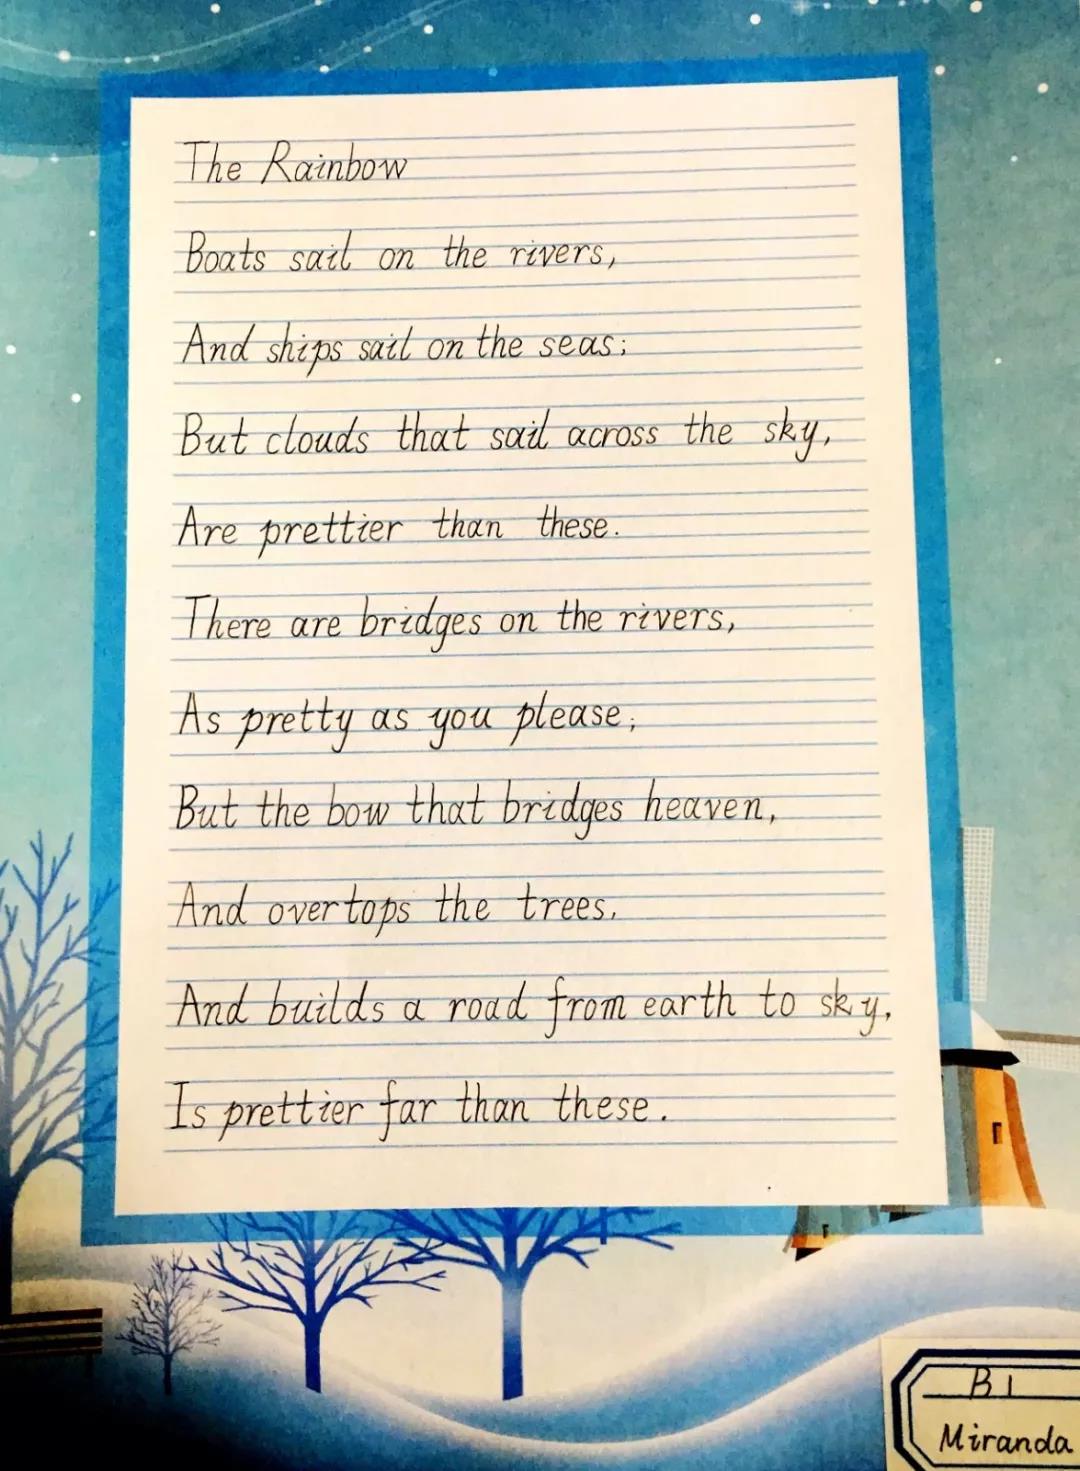 The Rainbow
Boats sail on the rivers,
And ships sail on the seas;
But clouds that sail across the sky,
Are prettier than these.
There are bridges on the rivers,
As pretty as you please;
But the bow that bridges heaven,
And overtops the trees,
And builds a road from earth to sky,
Is prettier far than these.
B1
Miranda